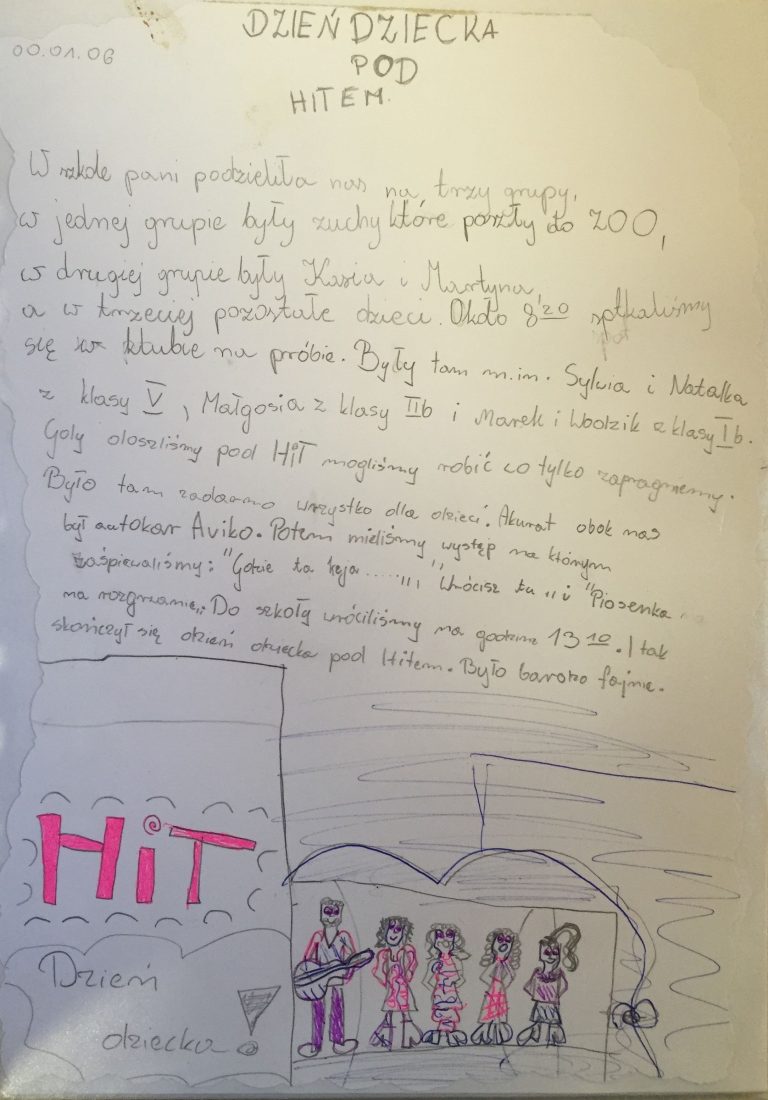 DZIEŃ DZIECKA
00.01.06
POD
HITEM.
W szkole pani podzieliła nas na trzy grupy,
w jednej grupie były zuchy które poszły do ZOO,
w drugiej grupie były Kasia i Martyna,
a w trzeciej pozostałe dzieci. Około 8'20 sptkaliśmy
się w klubie na próbie. Były tam m.im. Sylwia i Natalka
z klasy V, Małgosia z klasy IIb i Marek i Wodzik z klasy Ib.
Gdy doszliśmy pod HiT mogliśmy robić co tylko zapragniemy.
Było tam zadarmo wszystko dla dzieci. Akurat obok nas
był autokar Aviko. Potem mieliśmy występ na którym
zaśpiewaliśmy: "Gdzie ta keja......,,, "Wrócisz tu,, i "Piosenka na
na rozgrzanie,,. Do szkoły wróciliśmy na godzine 13 10. I tak
skończył się dzień dziecka pod Hitem. Było bardzo fajnie.
HiT
Dzień
dziecka!